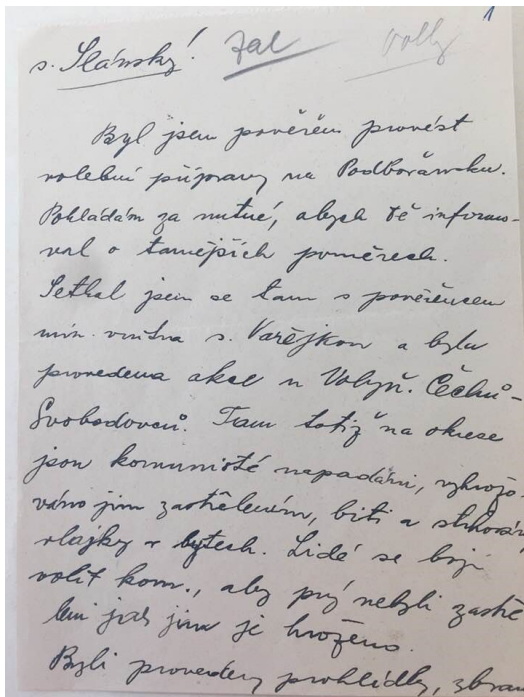 1
s. Slánský! Zal Volby
Byl jsem pověřen provést
volební přípravy na Podbořansku.
Pokládám za nutné, abych Tě informo-
val o tamějších poměrech.
Setkal jsem se tam s pověřencem
min. vnitra s. Varejkou a byla
provedena akce u Volyň. Čechů-
Svobodovců. Tam totiž na okrese
jsou komunisté napadáni, vyhrožo-
váno jim zastřelením, biti a strhován
vlajky v bytech. Lidé se bojí
volit kom., aby prý nebyli zastře
leni jak jim je hroženo.
Byli provedeny prohlídky, zbran